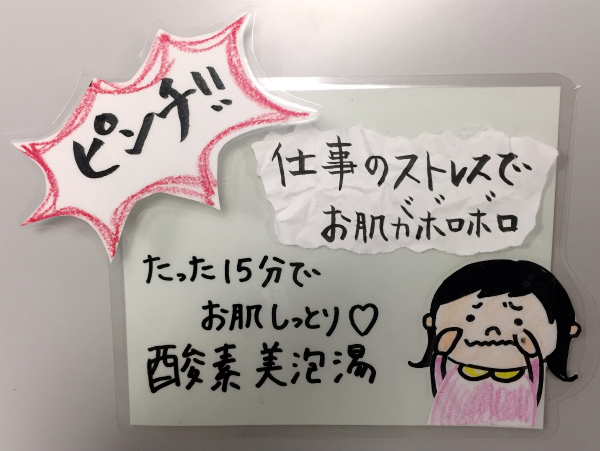 ピンチ!!
仕事のストレスで
お肌がボロボロ
たった15分で
お肌しっとり♡
酸素美泡湯